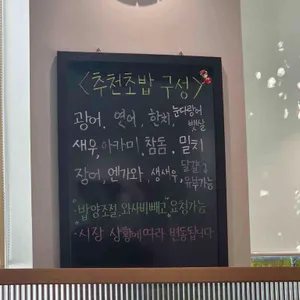 <추천초밥 구성>
광어, 연어, 한치, 눈다랑어 뱃살
새우, 아카미, 참돔, 밀치
장어, 엔가와, 생새우, 달걀 or 유부가능
"밥양조절, 와사비빼고" 요청가능
- 시장 상황에따라 변동됩니다